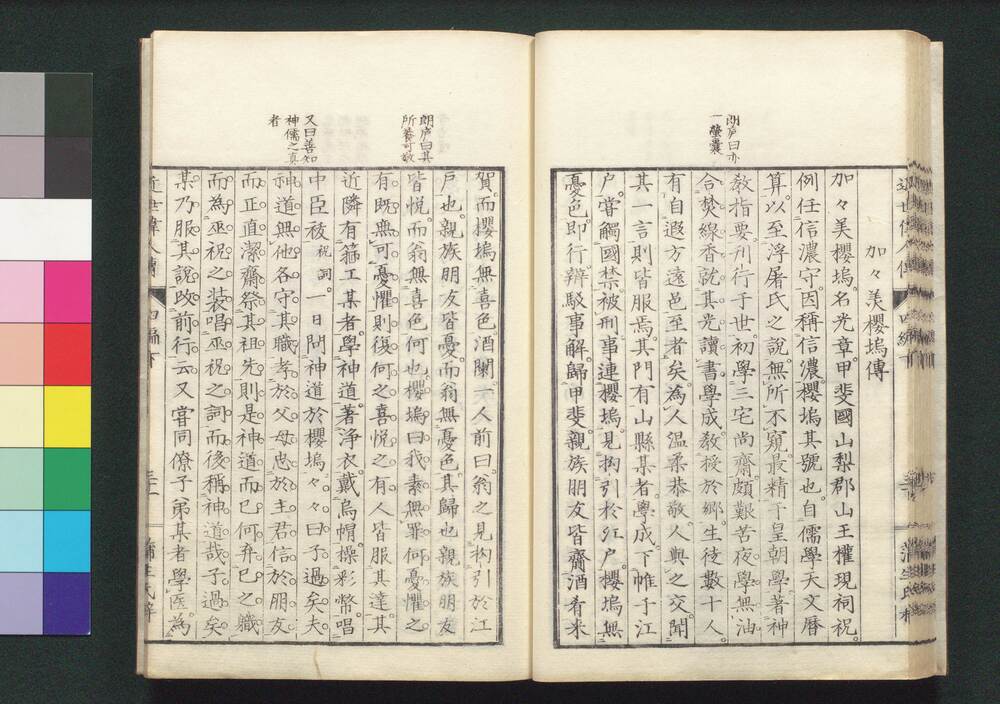 加々美櫻塢傳
加々美櫻塢。名光章。甲斐國山梨郡山王權現祠祝。
例任信濃守。因稱信濃。櫻塢其號也。自儒學天文曆
算。以至浮屠氏之說。無所不窺。最精于皇朝學。著神
敎指要刋行于世。初學三宅尚齋。頗艱苦。夜學無油
合焚線香。就其光讀書。學成敎授於鄉。生徒數十人
有自遐方遠邑至者矣。為人温柔恭敬。人與之交。聞
其一言則皆服焉。其門有山縣某者。學成下帷于江
户。嘗觸國禁被刑。事連櫻塢。見拘引於江户。櫻塢無
憂色。即行辯駁事解。歸甲斐。親族朋友皆齎酒肴来
朗庐曰亦
一螢囊
賀。而櫻塢無喜色。酒闌一人前曰。翁之見拘引於江
戶也。親族朋友皆憂。而翁無憂色。其歸也親族朋友
皆悦。而翁無喜色何也。櫻塢曰。我素無罪。何憂懼之
有。既無可憂懼。則復何之喜悦之有。人皆服其達。其
近隣有箍工某者。學神道。著浄衣。戴烏帽。操彩幣。唱
中臣祓祝詞。一日問神道於櫻塢。々々曰。子過矣。夫
神道無他。各守其職。孝於父母。忠於主君。信於朋友
而正直潔齋祭其祖先。則是神道而已。何弃己之職
而為巫祝之装。唱巫祝之詞。而後稱神道哉。子過矣
某乃服其說。改前行云。又嘗同僚子弟某者學医。為
朗庐曰其
所養可敬
又曰善知
神儒之真
者
近世偉人傳
四編下
三十一
蒲生氏梓